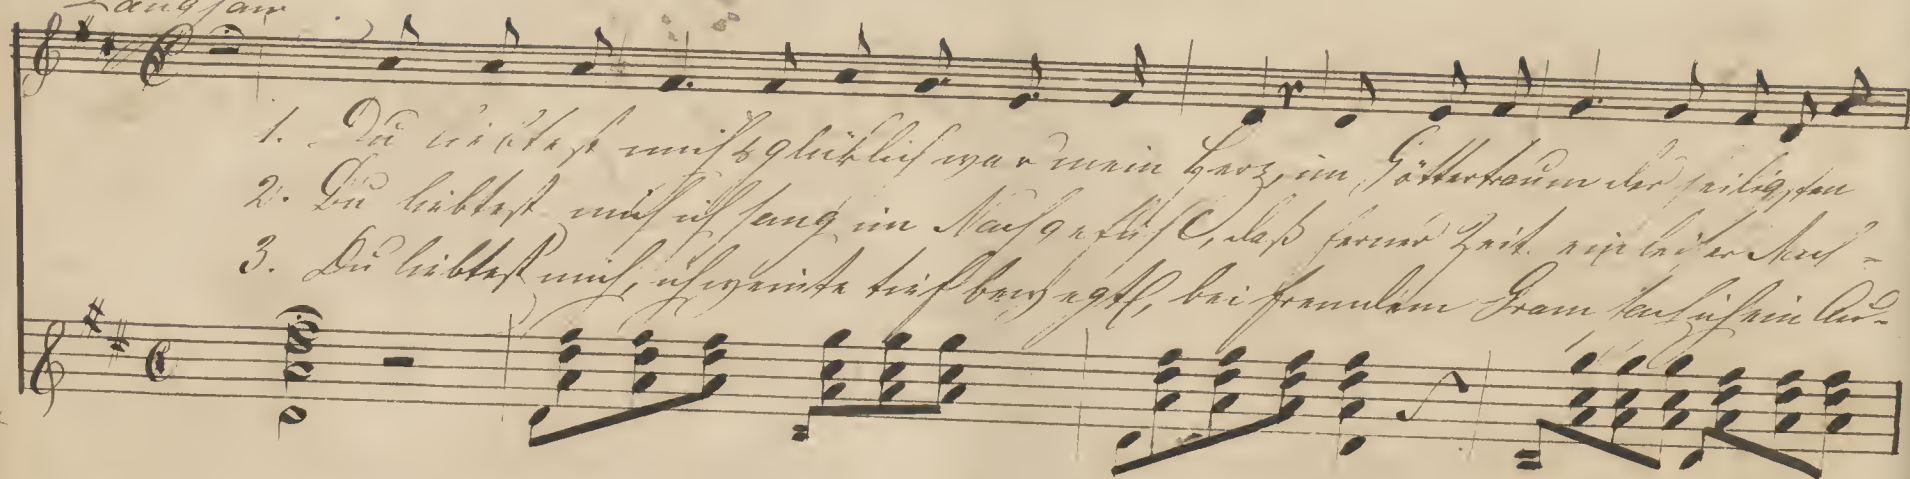 Langsam
1. Du liebtest mich glücklich war mein Herz, im Göttertraum der heiligsten
2. Du liebtest mich ich sang im Nachgefühl, daß ferner Zeit. ein leiser Nach-
3. Du liebtest mich, ich weinte tief bewegt, bei fremdem Gram sah ich ein Au-